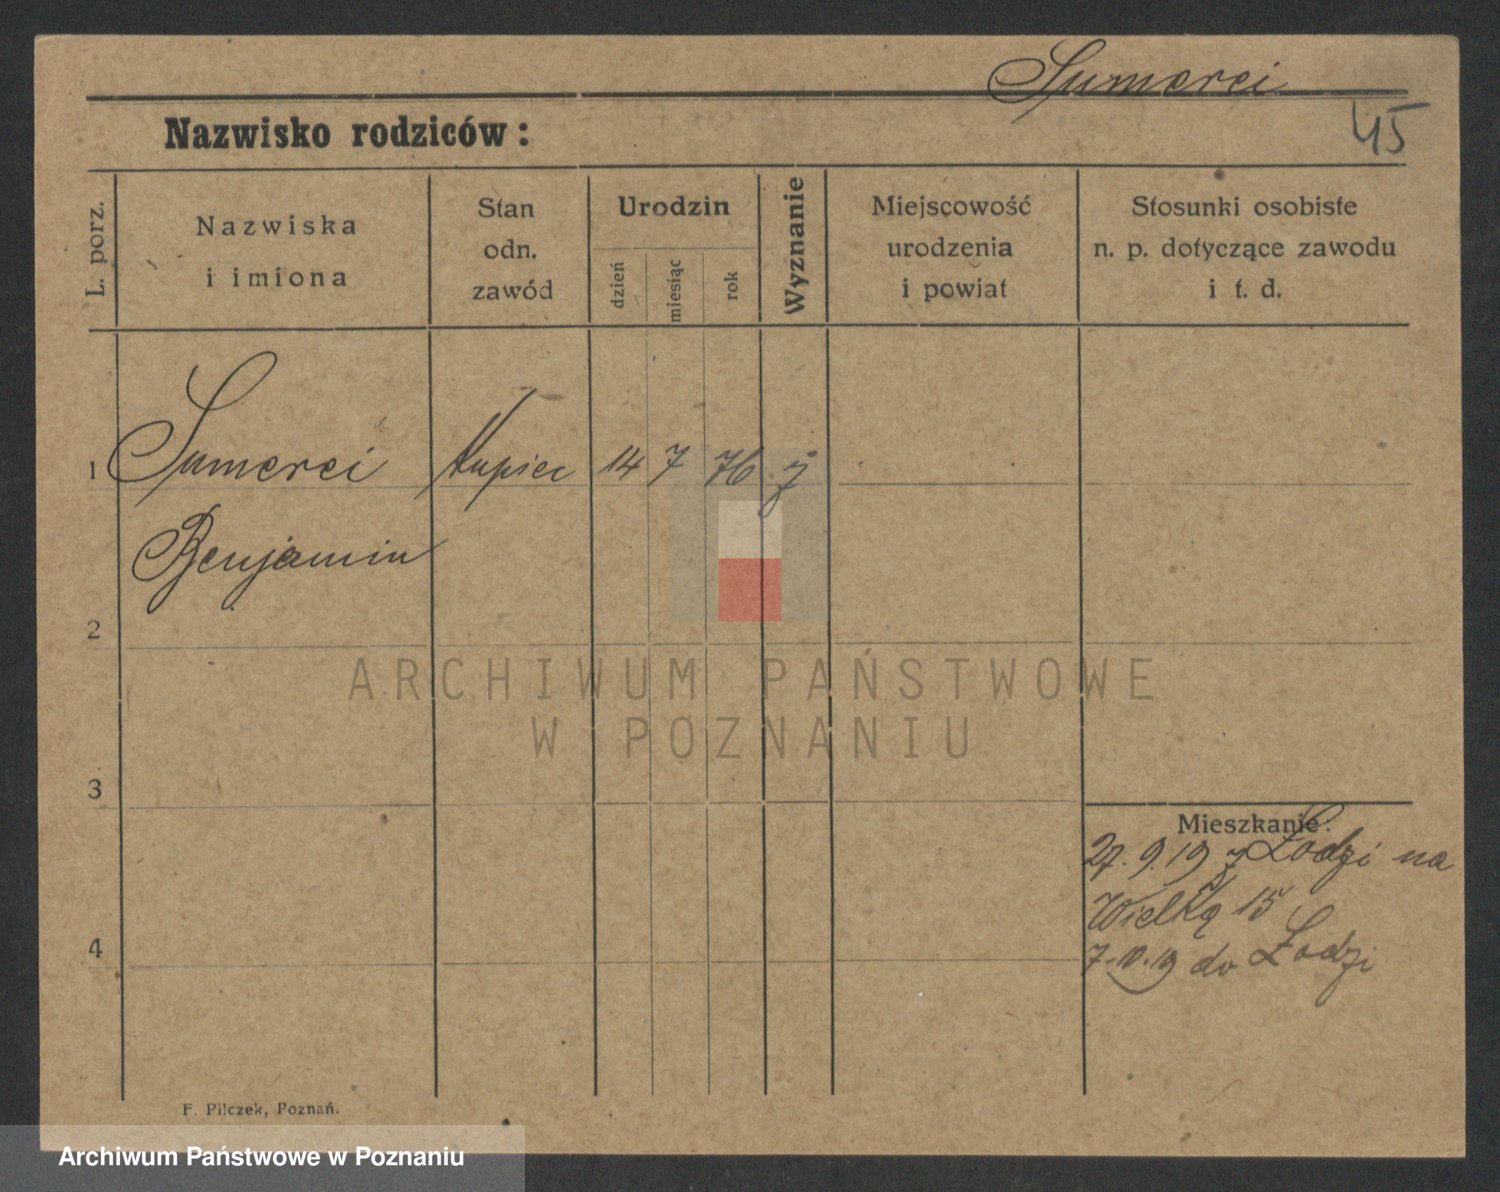 Sumerei
Nazwisko rodziców:
45
L. porz.
Nazwiska
i imiona
Stan
odn.
zawód
Urodzin
dzień
miesiąc
rok
Wyznanie
Miejscowość
urodzenia
i powiat
Stosunki osobiste
n. p. dotyczące zawodu
i t. d.
1 Sumerei Kupiec 14 7 76 j
Benjamin
2
3
4
Mieszkanie:
27. 9. 19 z Łodzi na
Wielką 15
7.10.19 do Łodzi
F. Pilczek, Poznań.
ARCHIWUM PAŃSTWOWE
W POZNANIU
Archiwum Państwowe w Poznaniu